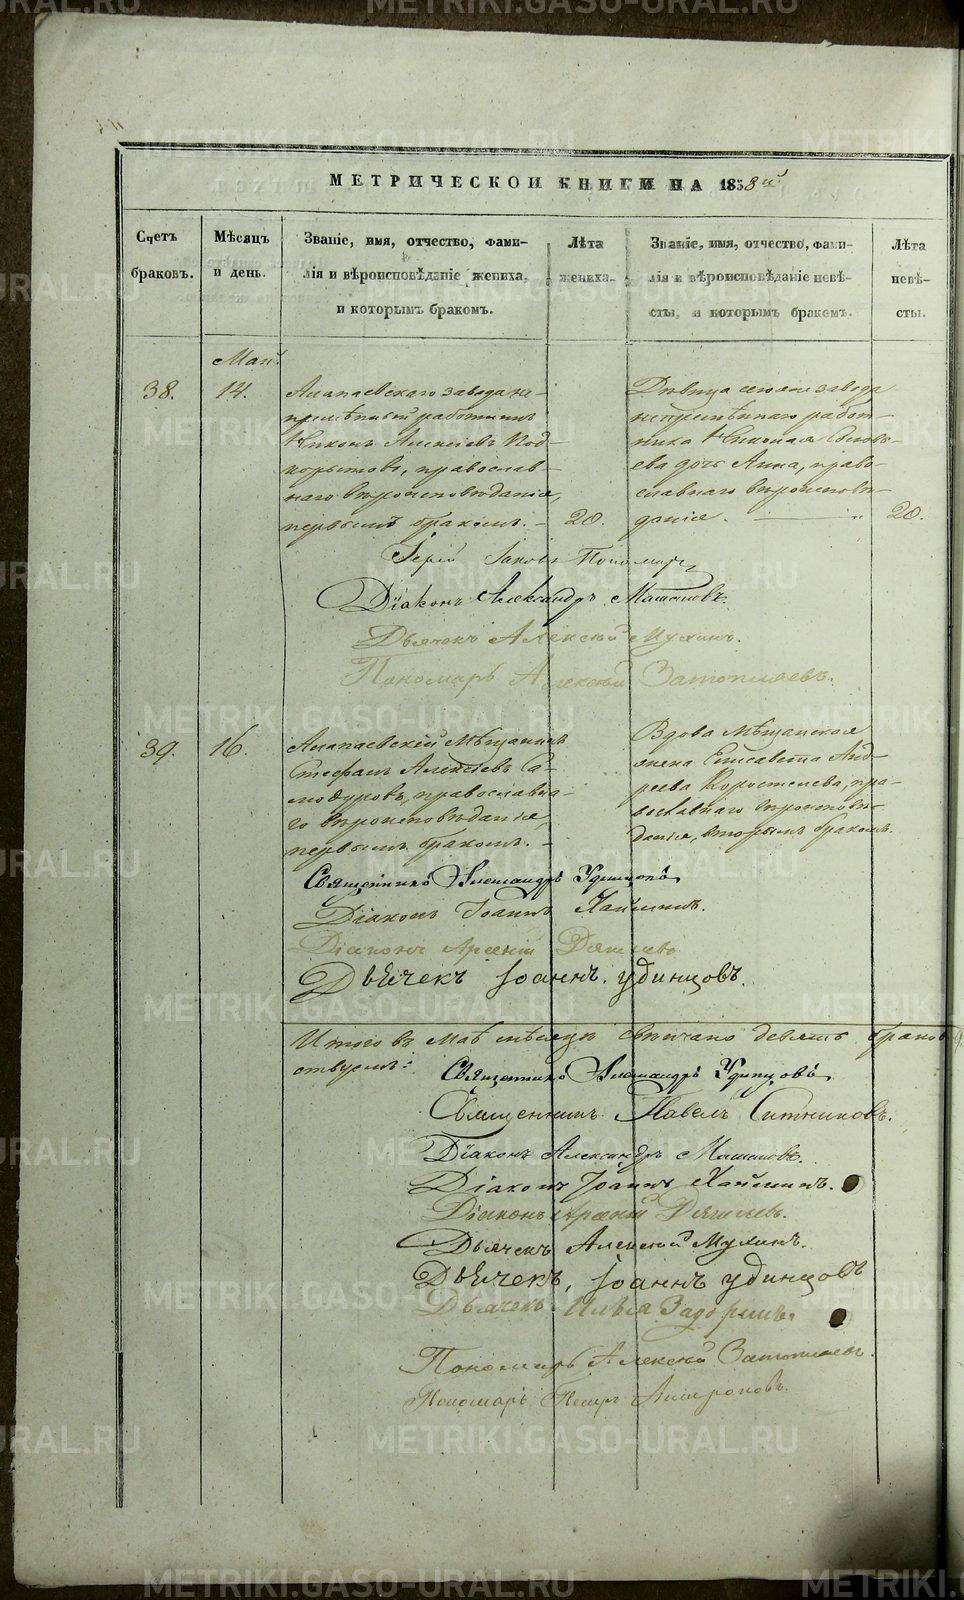 МЕТРИЧЕСКОЙ КНИГИ НА 1858й
Счетъ браковъ.
Мѣсяцъ и день.
Званіе, имя, отчество, фами-
лія и вѣроисповѣданіе жениха,
и которымъ бракомъ.
Лѣта
жениха.
Званіе, имя, отчество, фами-
лія и вѣроисповѣданіе невѣ-
сты, и которымъ бракомъ.
Лѣта
невѣ-
сты.
Май.
38.
14.
Алапаевскаго завода не-
премѣнный работникъ
Никонъ Алексѣевъ Под-
корытовъ, православ-
наго вѣроисповѣданія,
первымъ бракомъ. -
20.
Дѣвица сего же завода
непремѣннаго работ-
ника Николая
ева дочь Анна, право-
славнаго вѣроисповѣ-
данія.
20.
Іерей Іаковъ Пономарев
Діаконъ Александръ Машановъ.
Дьячекъ Алексѣй Мухинъ.
Пономарь Алексѣй Затопляевъ.
39.
16.
Алапаевскій Мѣщанинъ
Стефанъ Алексѣевъ Са-
модуровъ, православна-
го вѣроисповѣданія,
первымъ бракомъ. -
Вдова Мѣщанская
женка Елисавета Анд-
реева Коростелева, пра-
вославнаго вѣроисповѣ-
данія, вторымъ бракомъ.
Священникъ Александръ Удинцовъ
Діаконъ Іоаннъ Хайминъ.
Діаконъ Арсеній Дягилевъ
Дьячекъ Іоаннъ Удинцовъ.
Итого въ Маѣ мѣсяцѣ свѣнчано девять браковъ
Священникъ Александръ Удинцовъ,
Священникъ Павелъ Ситниковъ.
Діаконъ Александръ Машановъ.
Діаконъ Іоаннъ Хайминъ.
Діаконъ Арсеній Дягилевъ.
Дьячекъ Алексѣй Мухинъ.
Дьячекъ, Іоаннъ Удинцовъ
Дьячекъ Илья Задоринъ
Пономарь Алексѣй Затопляевъ.
Пономарь Петръ Антроповъ.
METRIKI.GASO-URAL.RU